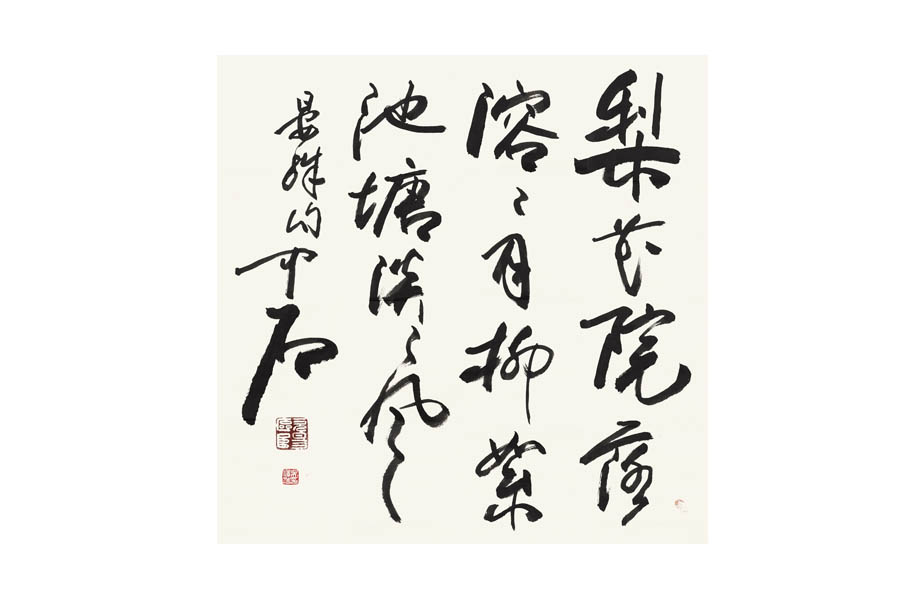 梨花院落
溶〻月柳絮
池塘淡〻風
晏殊句中石